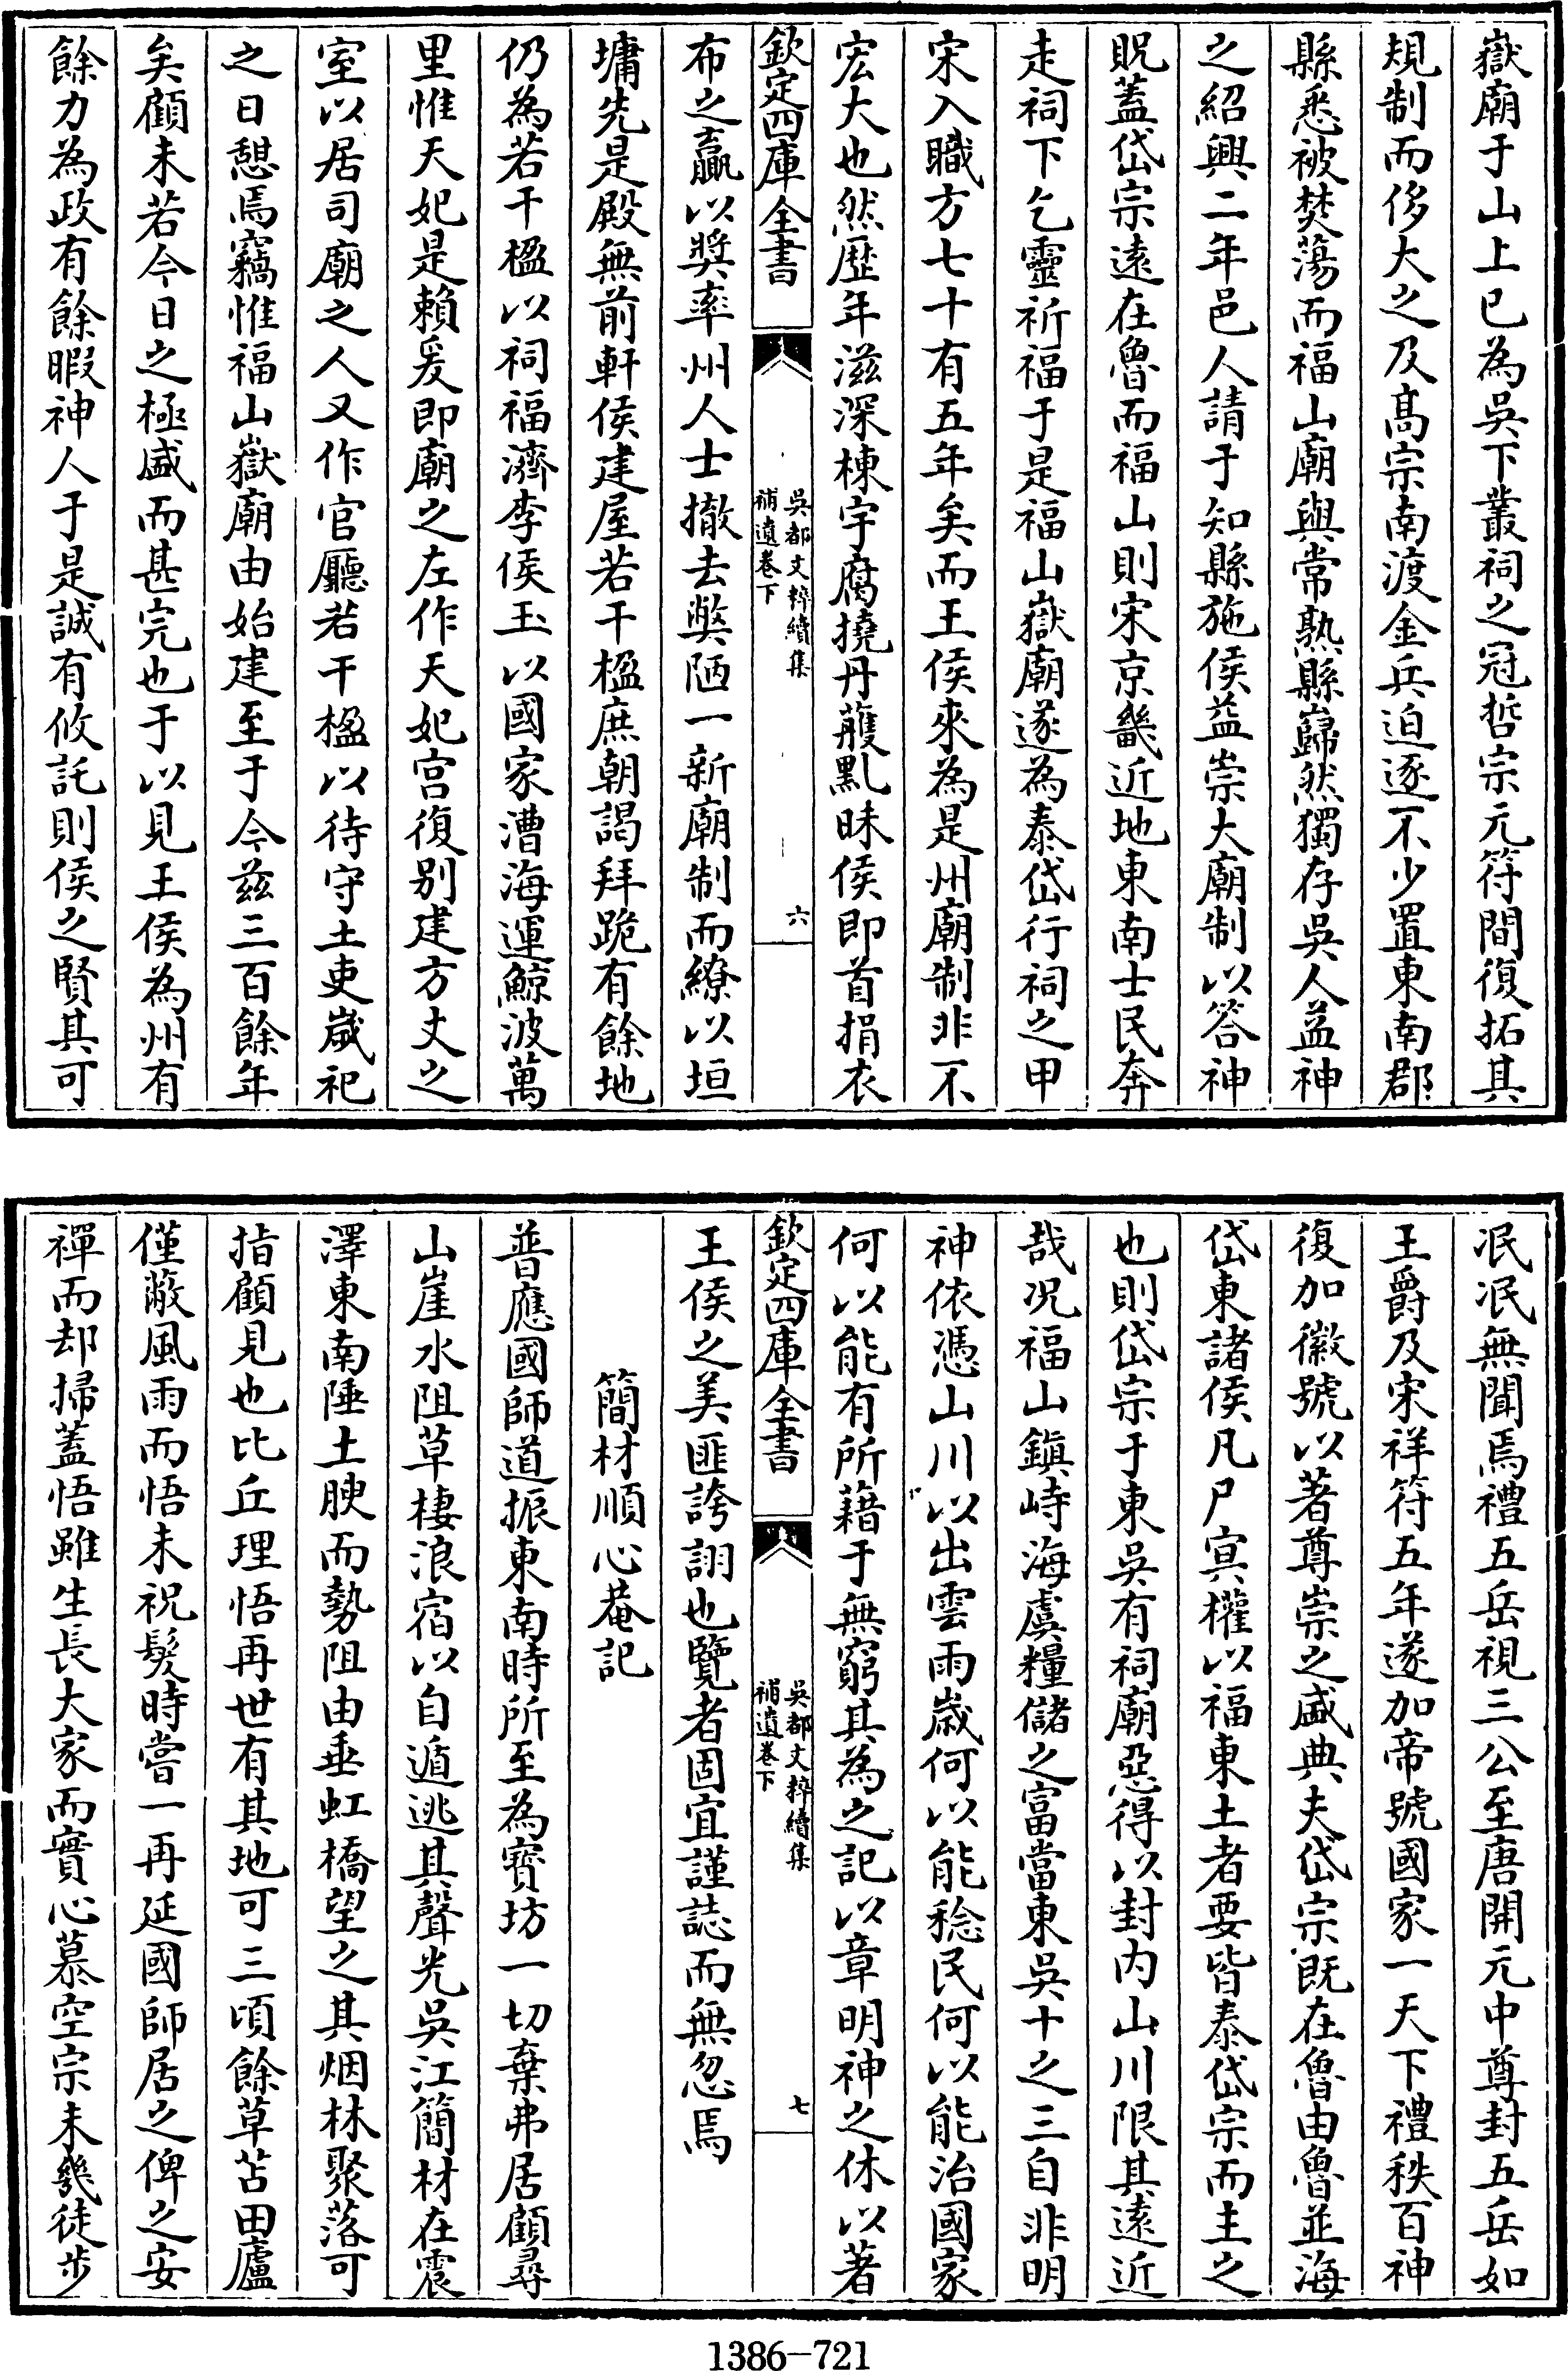 嶽廟于山上已為吳下叢祠之冠哲宗元符間復拓其
規制而侈大之及髙宗南渡金兵迫逐不少置東南郡
縣悉被焚蕩而福山廟與常熟縣巋然獨存吳人益神
之紹興二年邑人請于知縣施侯益崇大廟制以答神
貺蓋岱宗逺在魯而福山則宋京畿近地東南士民奔
走祠下乞靈祈福于是福山嶽廟遂為泰岱行祠之甲
宋入職方七十有五年矣而王侯來為是州廟制非不
宏大也然歴年滋深棟宇腐撓丹雘黕昧侯即首捐衣
欽定四庫全書
吳都文粹續集
補遺卷下
六
布之贏以奬率州人士撤去弊陋一新廟制而繚以垣
墉先是殿無前軒侯建屋若干楹庶朝謁拜跪有餘地
仍為若干楹以祠福濟李侯玉以國家漕海運鯨波萬
里惟天妃是賴爰即廟之左作天妃宫復别建方丈之
室以居司廟之人又作官廳若干楹以待守土吏嵗祀
之日憩焉竊惟福山嶽廟由始建至于今兹三百餘年
矣顧未若今日之極盛而甚完也于以見王侯為州有
餘力為政有餘暇神人于是誠有攸託則侯之賢其可
泯泯無聞焉禮五岳視三公至唐開元中尊封五岳如
王爵及宋祥符五年遂加帝號國家一天下禮秩百神
復加徽號以著尊崇之盛典夫岱宗既在魯由魯並海
岱東諸侯凡尸㝠權以福東土者要皆泰岱宗而主之
也則岱宗于東吳有祠廟惡得以封内山川限其逺近
哉况福山鎮峙海虞糧儲之富當東吳十之三自非明
神依憑山川以出雲雨嵗何以能稔民何以能治國家
何以能有所藉于無窮其為之記以章明神之休以著
欽定四庫全書
吳都文粹續集
補遺卷下
七
王侯之美匪誇詡也覽者固宜謹誌而無忽焉
簡村順心菴記
普應國師道振東南時所至為寳坊一切棄弗居顧尋
山崖水阻草棲浪宿以自遁逃其聲光吳江簡村在震
澤東南陲土腴而勢阻由垂虹橋望之其烟林聚落可
指顧見也比丘理悟再世有其地可三頃餘草苫田廬
僅蔽風雨而悟未祝髮時嘗一再延國師居之俾之安
禪而却掃蓋悟雖生長大家而實心慕空宗未幾徒步
1386-721